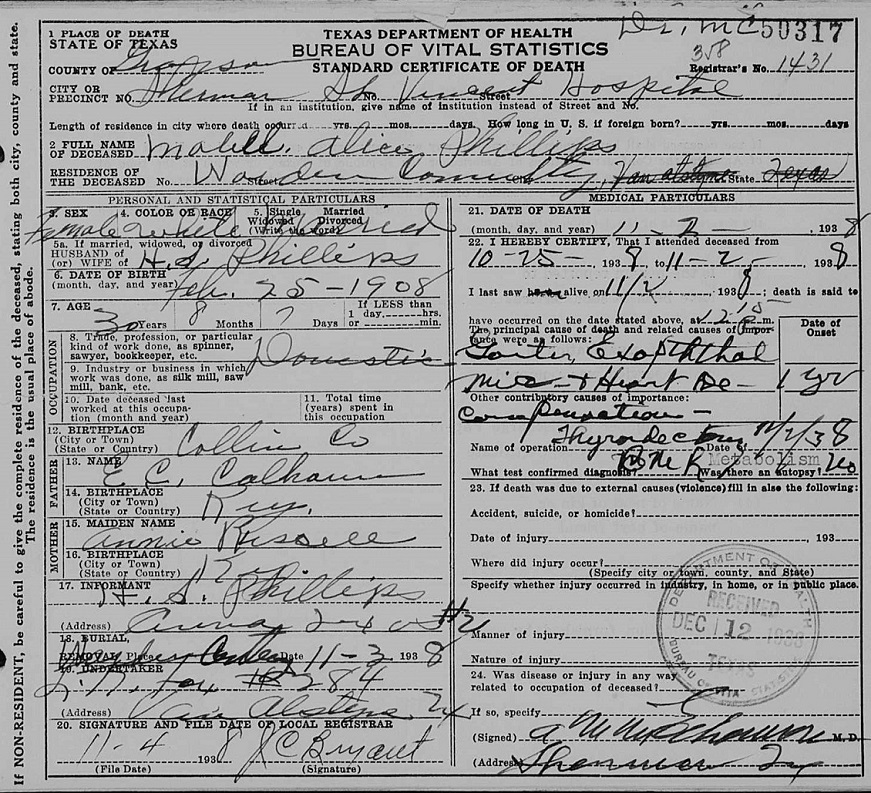 Dr. Mc 50317
1 PLACE OF DEATH
STATE OF TEXAS
TEXAS DEPARTMENT OF HEALTH
BUREAU OF VITAL STATISTICS
STANDARD CERTIFICATE OF DEATH
358
Registrar's No. 1431
COUNTY OF Grayson
CITY OR
PRECINCT NO. Sherman No. St. Vincent Street Hospital
If in an institution, give name of institution instead of Street and No.
Length of residence in city where death occurred yrs. mos. days. How long in U. S. if foreign born? yrs. mos. days
2 FULL NAME
OF DECEASED Mabell Alice Phillips
RESIDENCE OF
THE DECEASED No. Street Community, Van Alstyne State Texas
PERSONAL AND STATISTICAL PARTICULARS
3. SEX 4. COLOR OR RACE 5. Single Married Widowed Divorced (Write the word)
Female White Married
5a. If married, widowed, or divorced
HUSBAND OF
(or) WIFE of H. S. Phillips
6. DATE OF BIRTH
(month, day, and year) Feb. 25-1908
7. AGE 30 Years 8 Months 7 Days If LESS than 1 day, hrs. or min.
OCCUPATION
8. Trade, profession, or particular
kind of work done, as spinner,
sawyer, bookkeeper, etc. Domestic
9. Industry or business in which
work was done, as silk mill, saw
mill, bank, etc.
10. Date deceased last
worked at this occupa-
tion (month and year)
11. Total time
(years) spent in
this occupation
12. BIRTHPLACE
(City or Town)
(State or Country) Collin Co
FATHER
13. NAME E. C. Calhoun
14. BIRTHPLACE
(City or Town)
(State or Country) Ky.
MOTHER
15. MAIDEN NAME
Annie Russell
16. BIRTHPLACE
(City or Town)
(State or Country)
17. INFORMANT H. S. Phillips
(Address) Anna
18. BURIAL,
REMOVAL Place Date 11-3 1938
19. UNDERTAKER
(Address) Van Alstyne Tx
20. SIGNATURE AND FILE DATE OF LOCAL REGISTRAR
11-4 1938 J C Bryant
(File Date) (Signature)
MEDICAL PARTICULARS
21. DATE OF DEATH
(month, day, and year) 11-2-, 1938
22. I HEREBY CERTIFY, That I attended deceased from
10-25-, 1938, to 11-2-, 1938
I last saw alive on 11/2, 1938; death is said to
have occurred on the date stated above, at 12:15 P.m.
The principal cause of death and related causes of impor-
tance were as follows:
Date of
Onset
Goiter, Exophthal
mic + Heart De- 1 yr
Other contributory causes of importance:
Compensation-
Name of operation Thyroidectomy Date of 11/2/38
What test confirmed diagnosis? B M R Metabolism Was there an autopsy? No
23. If death was due to external causes (violence) fill in also the following:
Accident, suicide, or homicide?
Date of injury , 193
Where did injury occur?
(Specify city or town, county, and State)
Specify whether injury occurred in industry, in home, or in public place.
Manner of injury
Nature of injury
24. Was disease or injury in any way
related to occupation of deceased?
If so, specify
(Signed) M. D.
(Address) Sherman Tx
DEPARTMENT OF HEALTH
RECEIVED
DEC 12 1938
TEXAS
BUREAU OF VITAL STATISTICS
If NON-RESIDENT, be careful to give the complete residence of the deceased, stating both city, county and state.
The residence is the usual place of abode.